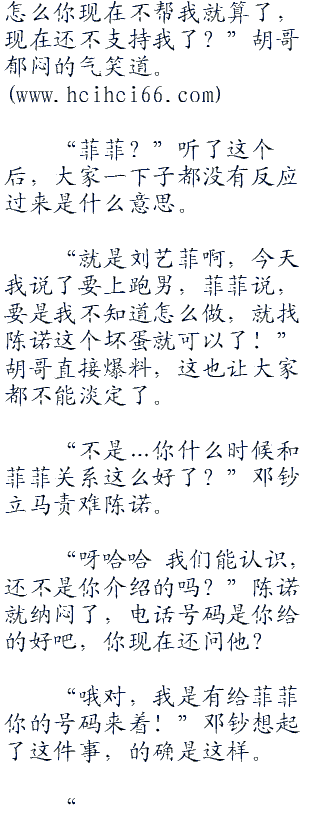 怎么你现在不帮我就算了，
现在还不支持我了？”胡哥
郁闷的气笑道。
(www.hcihci66.com)
“菲菲？”听了这个
后，大家一下子都没有反应
过来是什么意思。
“就是刘艺菲啊，今天
我说了要上跑男，菲菲说，
要是我不知道怎么做，就找
陈诺这个坏蛋就可以了！”
胡哥直接爆料，这也让大家
都不能淡定了。
“不是…你什么时候和
菲菲关系这么好了？”邓钞
立马责难陈诺。
“呀哈哈 我们能认识，
还不是你介绍的吗？”陈诺
就纳闷了，电话号码是你给
的好吧，你现在还问他？
“哦对，我是有给菲菲
你的号码来着！”邓钞想起
了这件事，的确是这样。
“